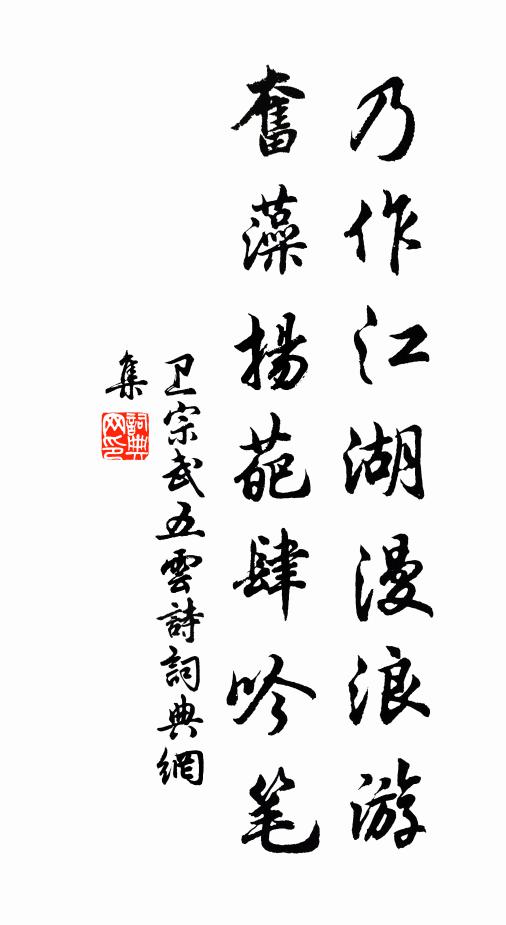 乃作江湖漫浪游
奮藻揚葩肆吟笔
卫宗武五雲詩詞典網
集
詞典网印